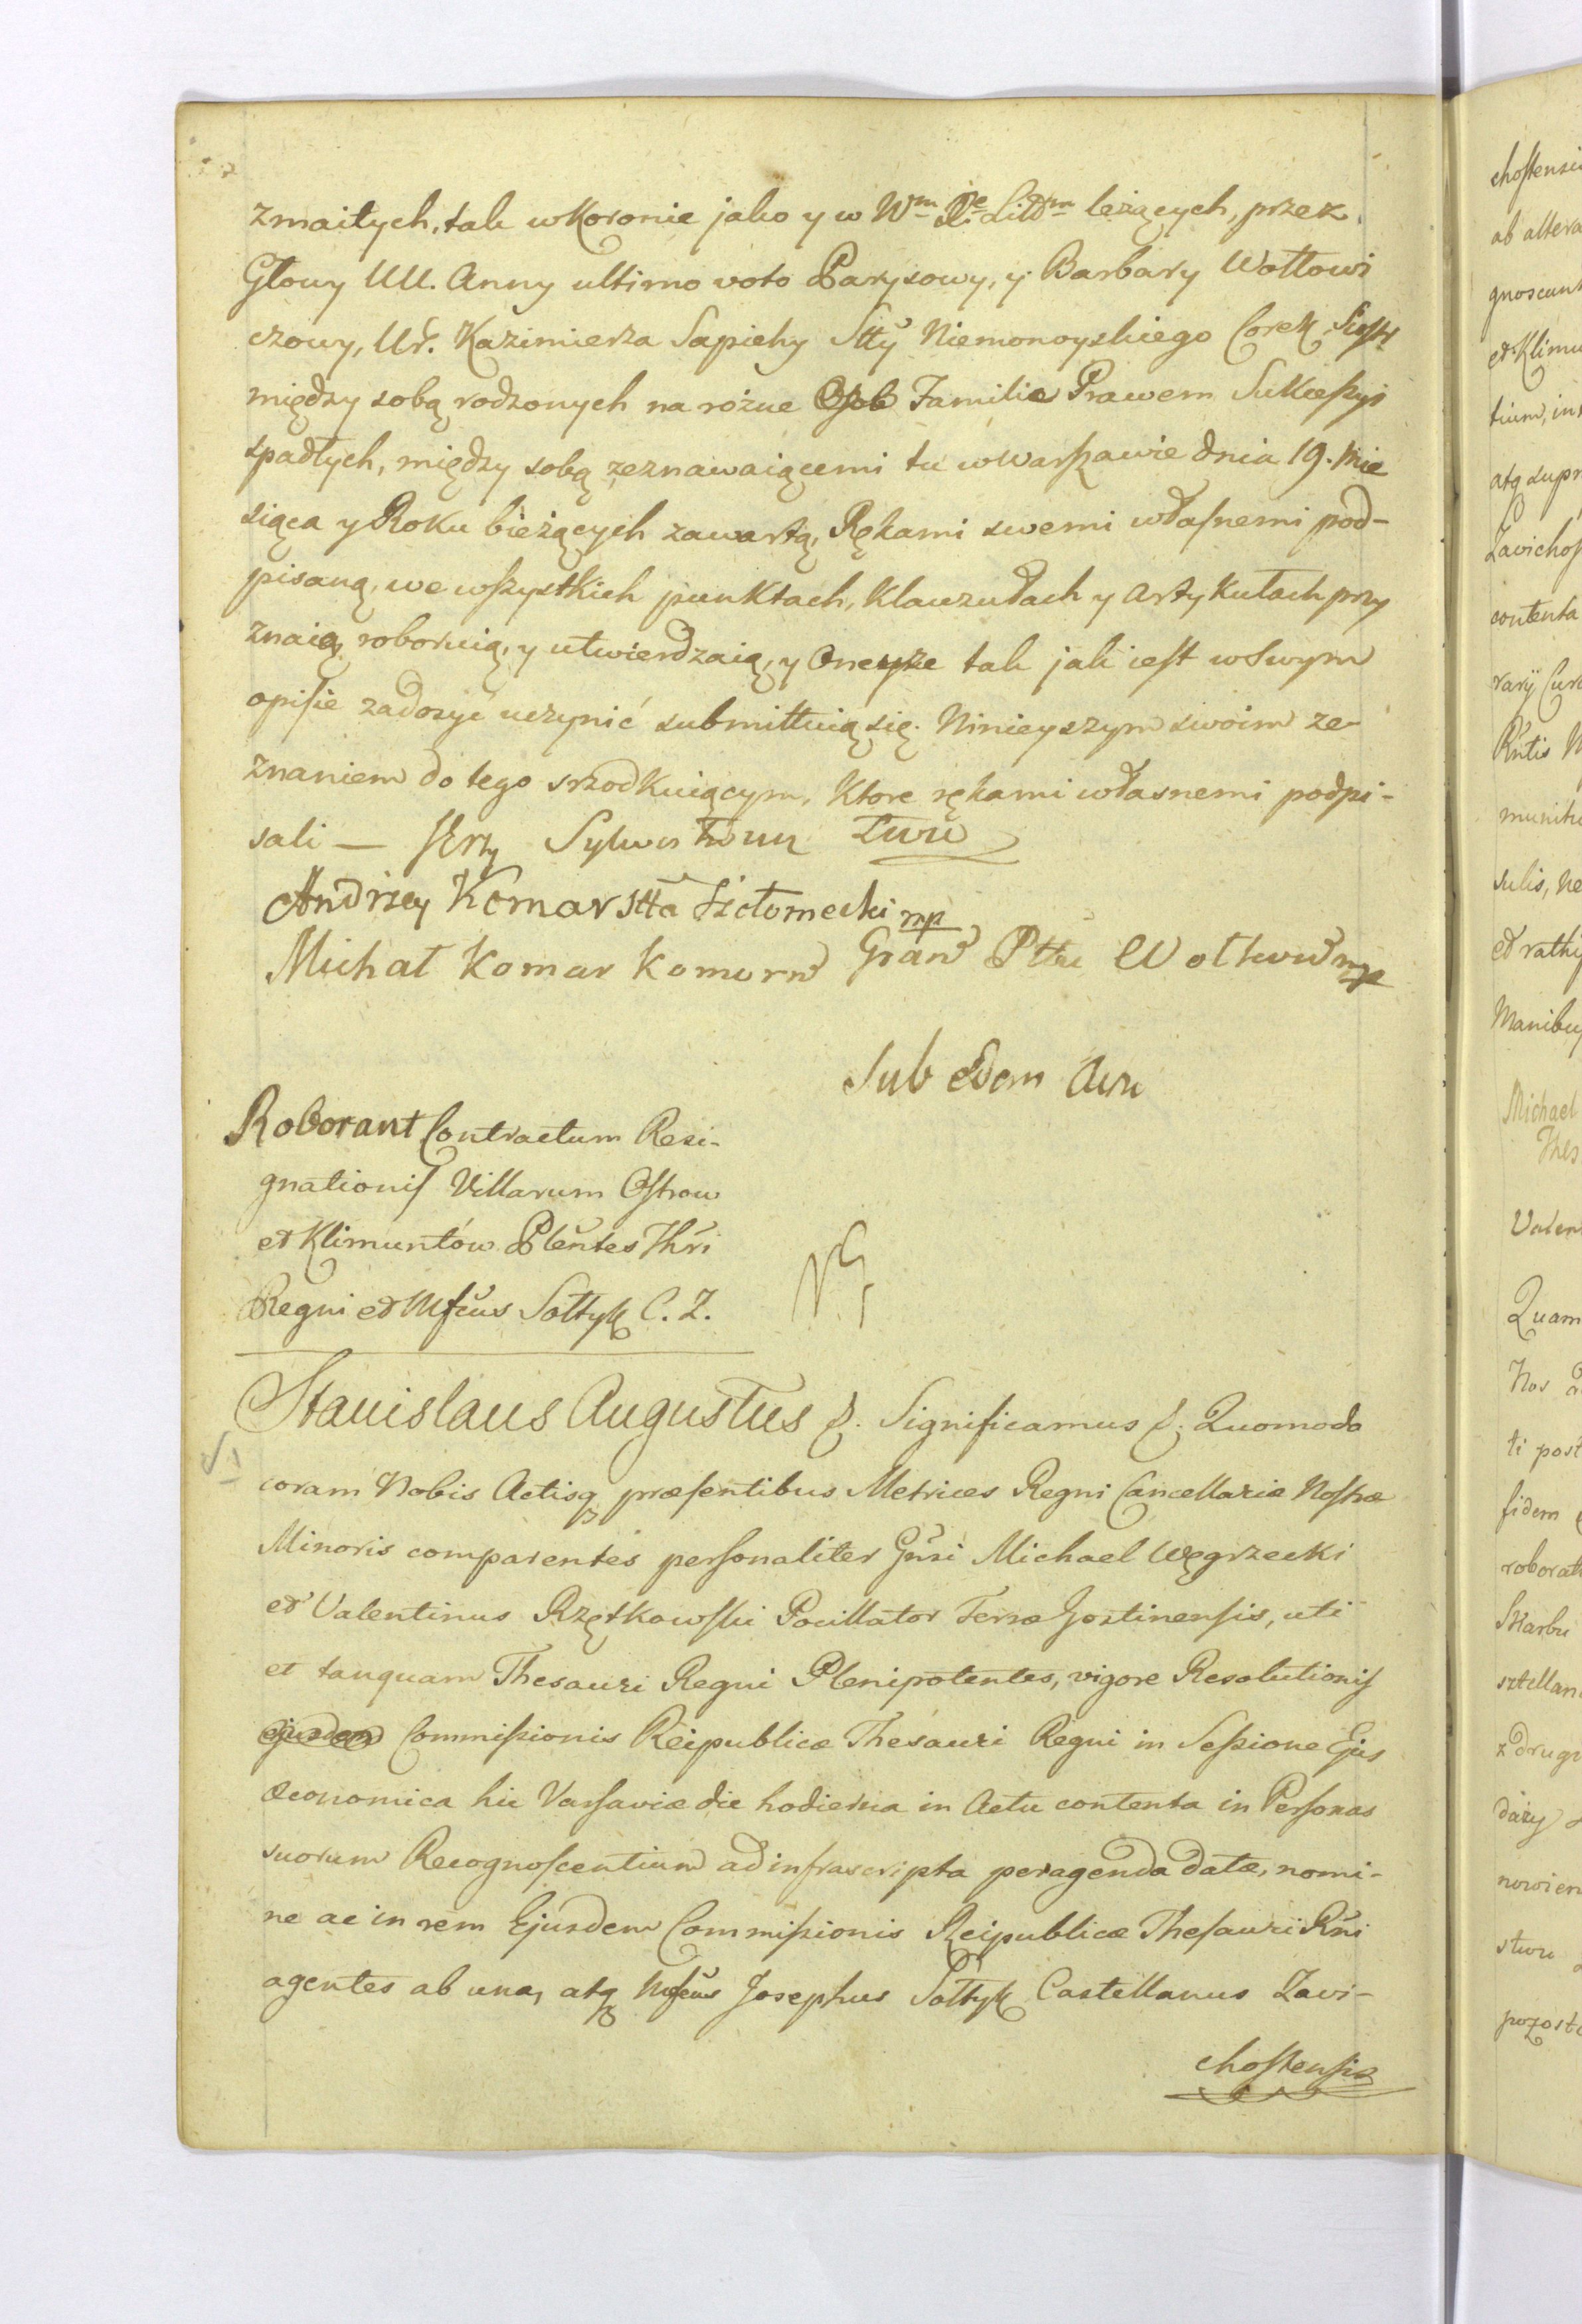 zmaitych, tak w Koronie jako y w Wm Xe Littm leżących, przez
Głowy UU. Anny ultimo voto Parysowy, y Barbary Wołłowi
czowy, Ur. Kazimierza Sapiehy Sttỹ Niemonoyskiego Corek Siostr
między sobą rodzonych na rożne Osob Familie Prawem Sukcessyi
spadłych, między sobą zeznawaiącemi tu w Warszawie dnia 19. Mie
siąca y Roku bieżących zawartą, Rękami swemi własnemi pod-
pisaną, we wszystkich punktach, Klauzułach y Artykułach przy
znaią, roboruią, y utwierdzaią, y Oneyże tak jak iest w swym
opisie zadosyć uczynić submittuią się. Ninieyszym swoim ze-
znaniem do tego srzodkuiącym, Ktore rękami własnemi podpi-
sali —
Andrzey Komar Stta mp
Michał Komar Komorn Gran Pttu Wołkow mp
Sub Edem Actu
Roborant Contractum Resi-
gnationis Villarum Ostrow
et Klimuntów Plentes Thri
Regni et Mfcus Sołtyk C. Z.
Stanislaus Augustus &. Significamus &. Quomodo
coram Nobis Actisq præsentibus Metrices Regni Cancellariæ Nostræ
Minoris comparentes personaliter Gnsi Michael Węgrzecki
et Valentinus Rzętkowski Pocillator Terræ Gostinensis, uti
et tanquam Thesauri Regni Plenipotentes, vigore Resolutionis
ejusdem Commissionis Reipublicæ Thesauri Regni in Sessione Ejus
Œconomica hic Varsaviæ die hodierna in Actu contenta in Personas
suorum Recognoscentium ad infrascripta peragenda datæ, nomi-
ne ac in rem Ejusdem Commissionis Reipublicæ Thesauri Rni
agentes ab una, atq Mfcus Josephus Sołtyk Castellanus Zavi-
chostensis
chostensi
ab altera
gnoscunt
et Klimu
tium, in
atq supr
Zavichos
contenta
rarÿ Cur
Rntis
munit
sulis, ne
et rathi
Manibu
Michael
Thes
Valen
Quam
Nos
ti post
fidem
roborat
Skarbu
sztellan
z drugi
dáży
nowien
stwu
pozost